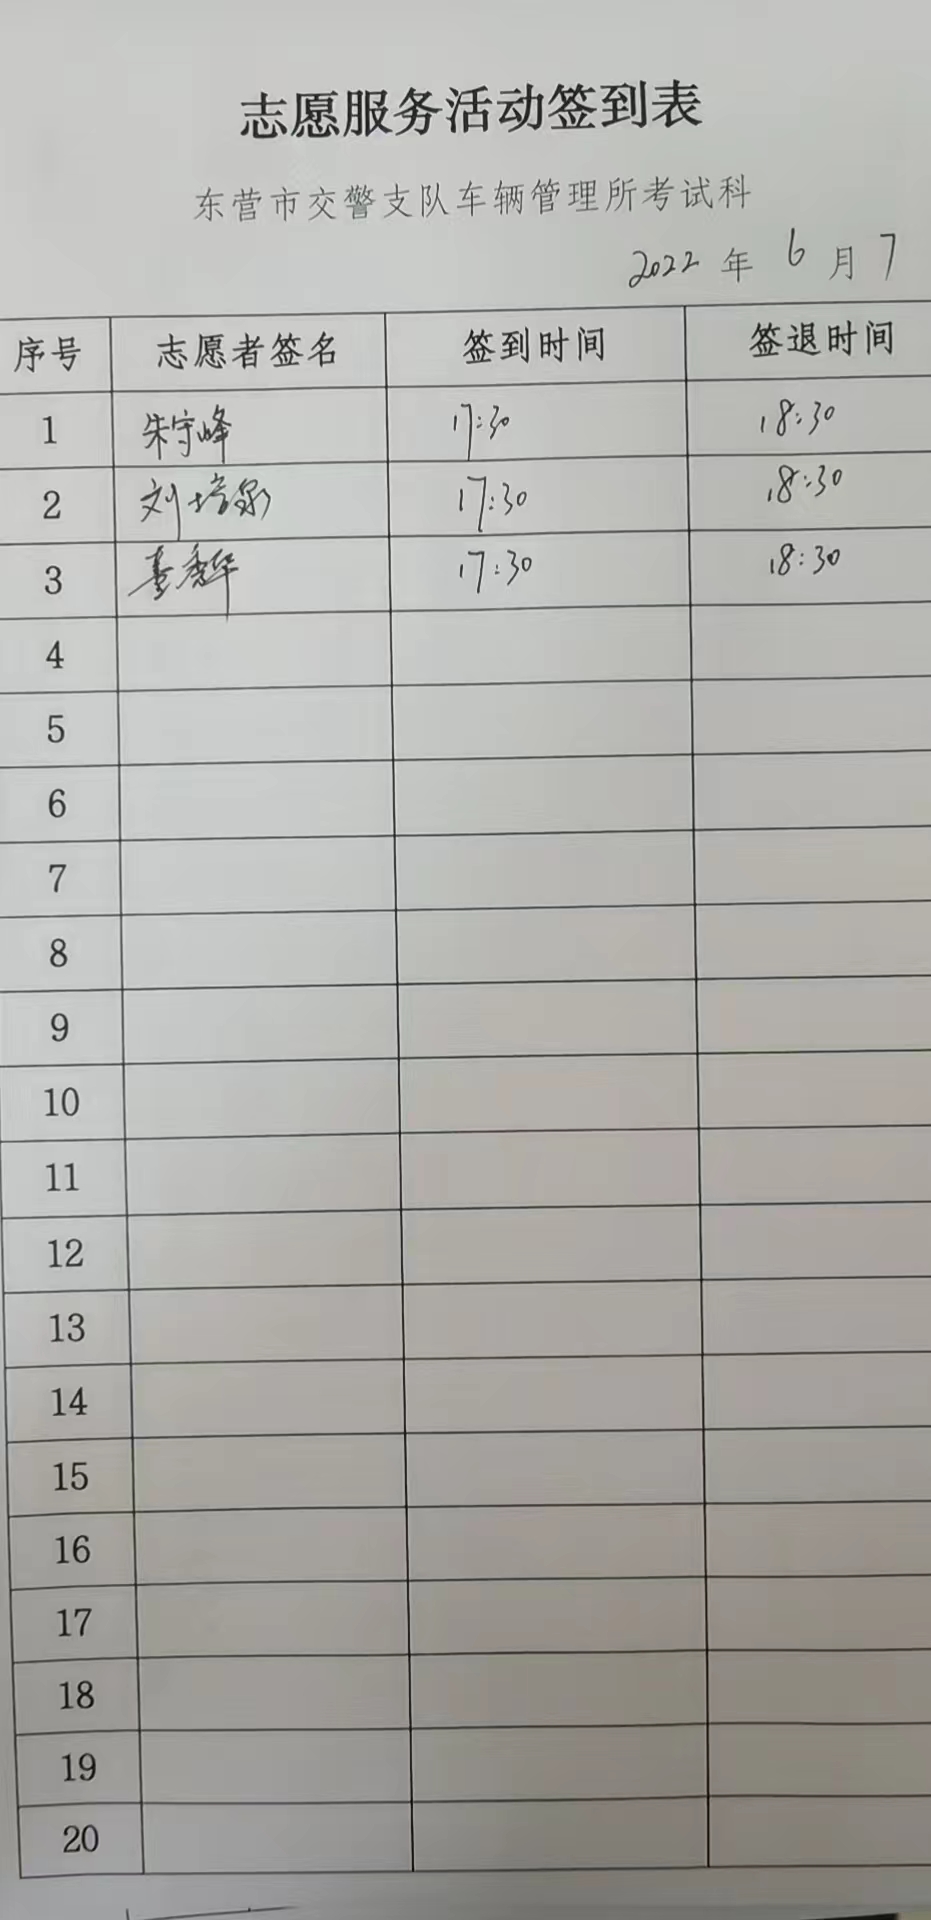 志愿服务活动签到表
东营市交警支队车辆管理所考试科
2022 年 6 月 7
序号 志愿者签名 签到时间 签退时间
1 朱守峰 17:30 18:30
2 刘培泉 17:30 18:30
3 17:30 18:30
4
5
6
7
8
9
10
11
12
13
14
15
16
17
18
19
20